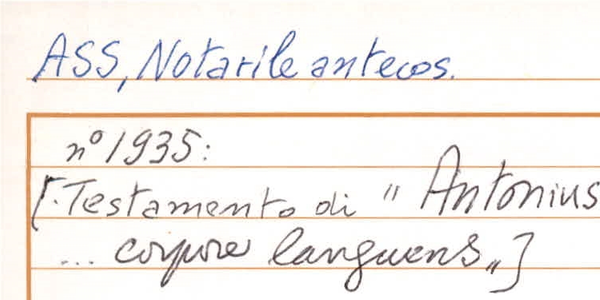 ASS, Notarile antecos.
nº 1935:
[.Testamento di " Antonius
... corpore languens „]